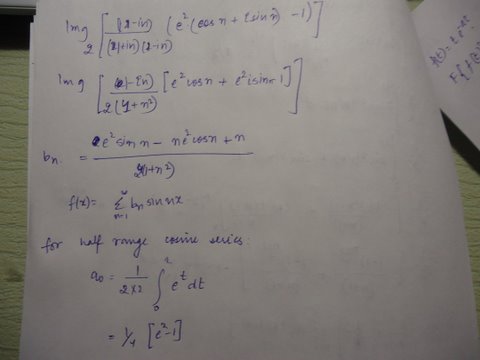 Img [ (1-in) / 2 (1+in)(1-in) (e² (cos n + i sin n) -1) ]
Img [ (1-in) / 2(1+n²) [e² cos n + e² i sin n -1] ]
bn = e² sin n - n e² cos n + n / 2(1+n²)
f(x) = ∑ n=1 ∞ bn sin nx
for half range cosine series:
a0 = 1/2×2 ∫ 0 2 e^t dt
= 1/4 [e²-1]
f(t) =
F[f(t)